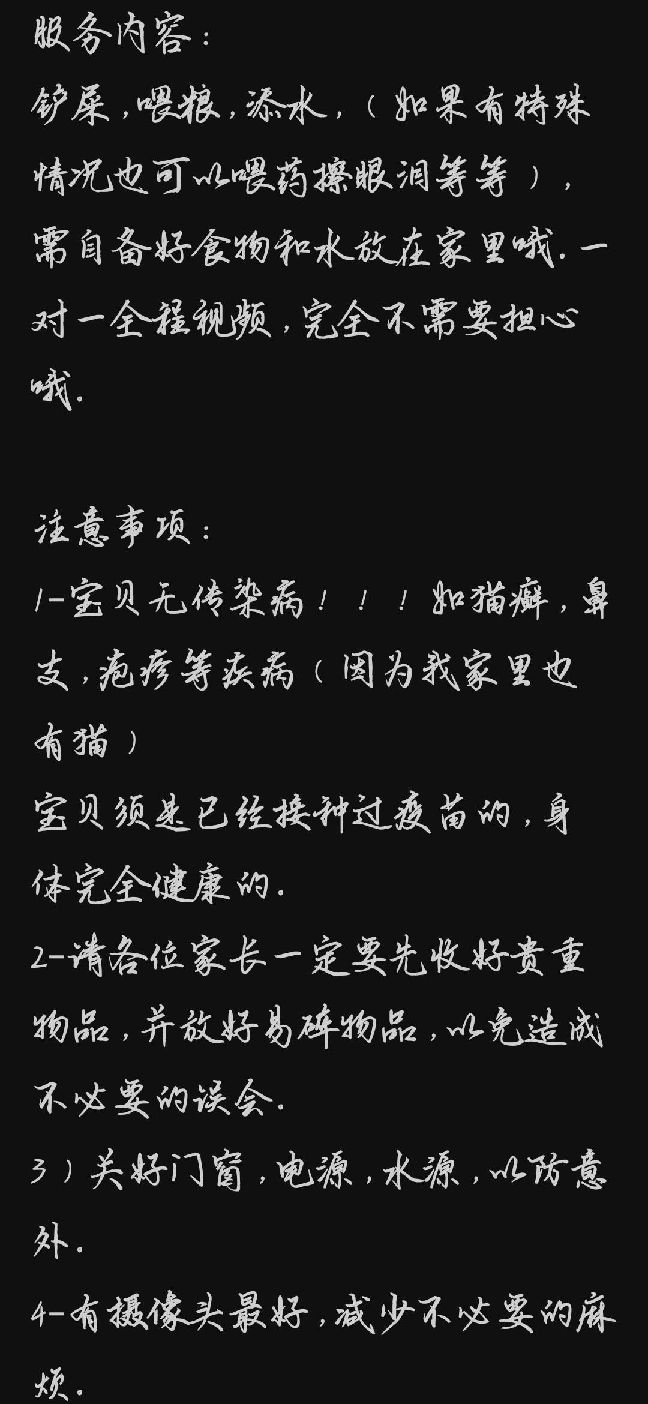 服务内容：
铲屎，喂粮，添水，（如果有特殊
情况也可以喂药擦眼泪等等），
需自备好食物和水放在家里哦.一
对一全程视频，完全不需要担心
哦.
注意事项：
1-宝贝无传染病！！！如猫癣，鼻
支，疱疹等疾病（因为我家里也
有猫）
宝贝须是已经接种过疫苗的，身
体完全健康的.
2-请各位家长一定要先收好贵重
物品，并放好易碎物品，以免造成
不必要的误会.
3）关好门窗，电源，水源，以防意
外.
4-有摄像头最好，减少不必要的麻
烦.